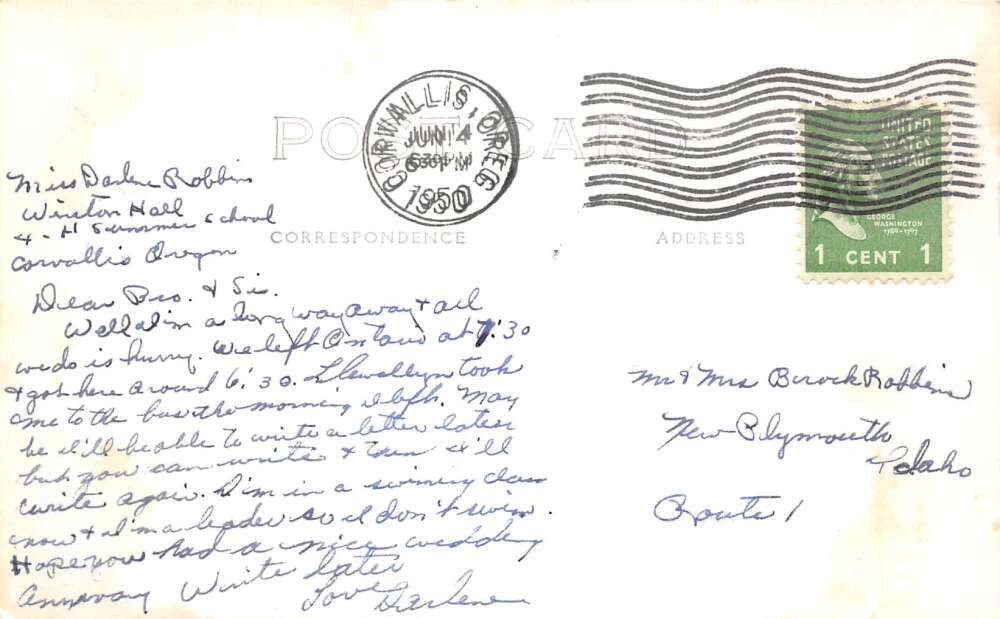 POST CARD
CORVALLIS, OREG
JUN 14
630 PM
1950
UNITED
STATES
POSTAGE
GEORGE
WASHINGTON
1789-1797
1 CENT 1
CORRESPONDENCE
ADDRESS
Miss Darlene Robbins
Winston Hall
4-H Summer School
Corvallis Oregon
Dear Bro. & Sis.
Well I'm a long way away & all
we do is hurry. We left Ontario at 7:30
& got here around 6:30. Llewellyn took
me to the bus the morning I left. May
be I'll be able to write a letter later
but you can write & then I'll
write again. I'm in a swiming class
now & I'm a leader so I don't swim.
Hope you had a nice wedding
Anniversary Write later
Love Darlene
Mr & Mrs Robbins
New Plymouth
Idaho
Route 1